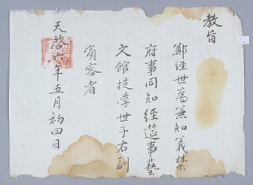 教旨
鄭經世爲兼知義禁
府事同知經筵事藝
文館提學世子右副
賓客者
天啓六年五月初四日